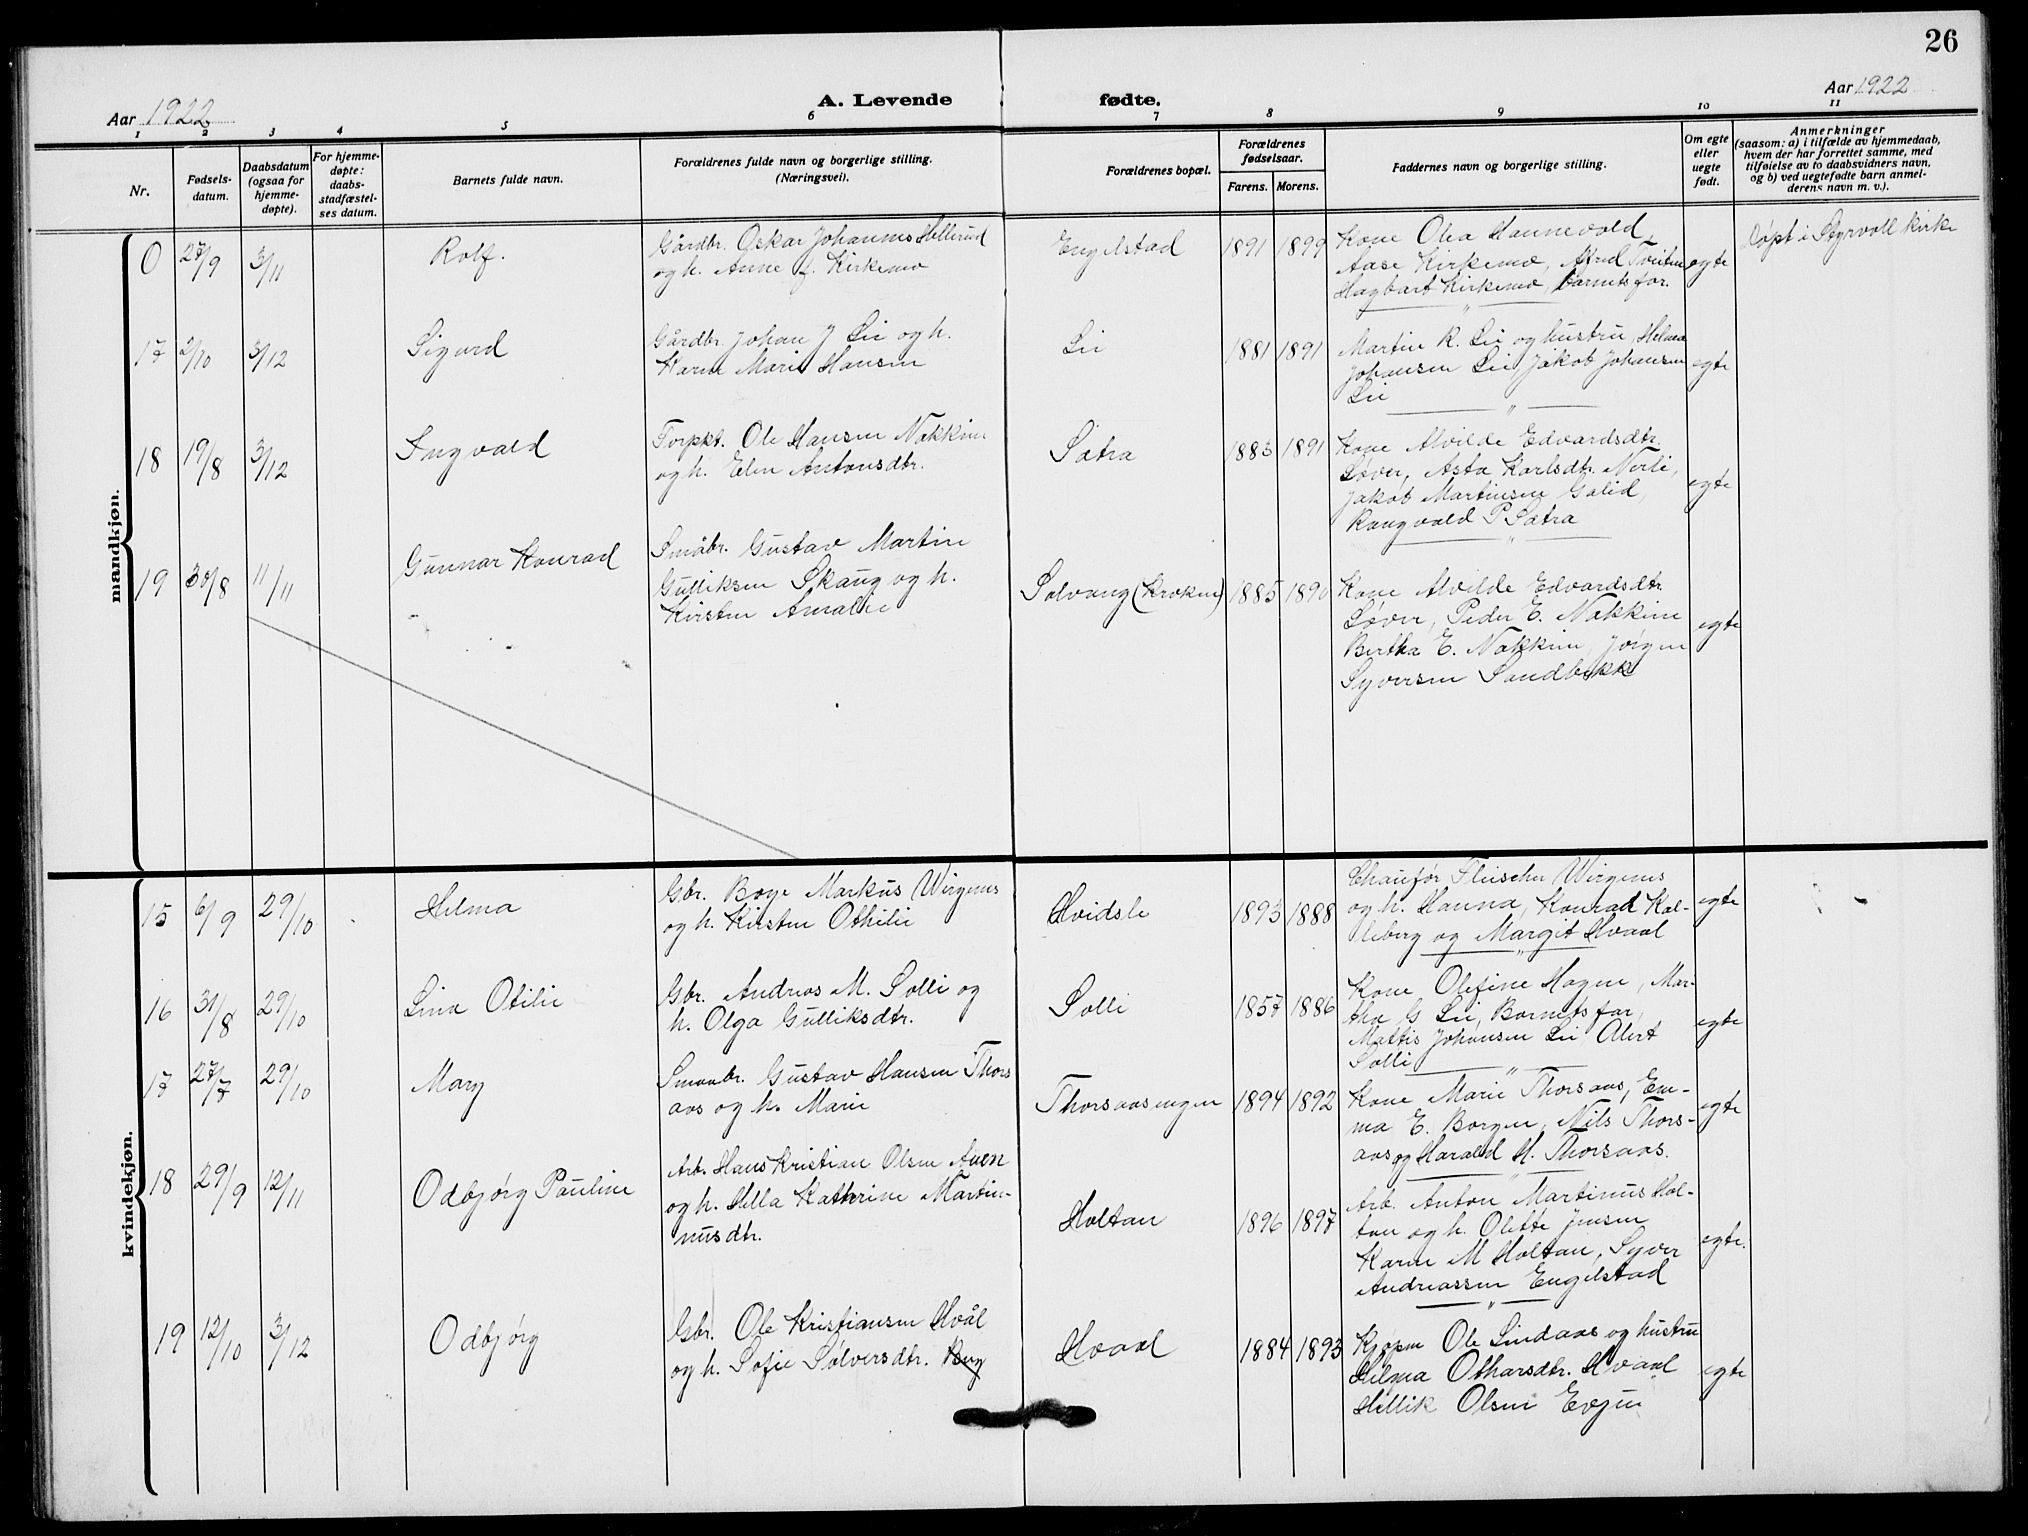 26
Aar 1922
A. Levende fødte.
Aar 1922
1 2 3 4 5 6 7 8 9 10 11
Nr.
Fødsels-
datum.
Daabsdatum
(ogsaa for
hjemme-
døpte).
For hjemme-
døpte:
daabs-
stadfæstel-
ses datum.
Barnets fulde navn.
Forældrenes fulde navn og borgerlige stilling.
(Næringsvei).
Forældrenes bopæl.
Forældrenes
fødselsaar.
Farens. Morens.
Faddernes navn og borgerlige stilling.
Om egte
eller
uegte
født.
Anmerkninger
(saasom: a) i tilfælde av hjemmedaab,
hvem der har forrettet samme, med
tilføielse av to daabsvidners navn,
og b) ved uegtefødte barn anmel-
derens navn m. v.).
mandkjøn.
0 27/9 3/11
Rolf.
Gårdbr. Oskar Johannes Hellerud
og h. Anne f. Kirkemo
Engelstad
1891 1899
Kone Olea Hannevold,
Aase Kirkemo, Tveiten
Hagbart Kirkemo, barnets far.
egte
Døpt i Styrvoll kirke
17 2/10 3/12
Sigurd
Gårdbr. Johan J Lie og h.
Karen Marie Hansen
Lie
1881 1891
Martin R. Lie og hustru, Helma
Johansen Lie Jakob Johansen
Lie
egte
18 19/8 3/12
Ingvald
Torpkt. Ole Hansen Nakkim
og h. Elen Antonsdtr.
Sætra
1883 1891
Kone Alvilde Edvardsdtr.
Løver, Asta Karlsdtr. Nerli,
Jakob Martinsen Galid,
Rangvald P. Sætra
egte
19 30/8 11/11
Gunnar Konrad
Småbr. Gustav Martin
Gulliksen Skaug og h.
Kirsten Amalie
Solvang (Kroken)
1885 1890
Kone Alvilde Edvardsdtr.
Løver, Peder E. Nakkim
Bertha E. Nakkim, Jørgen
Syversen Sandbekk
egte
kvindekjøn.
15 6/9 29/10
Helma
Gbr. Boye Markus Wirgenes
og h. Kirsten Othilie
Hvidsle
1893 1888
Chaufør Fleischer Wirgenes
og h. Hanna, Konrad Kal-
leberg og Margit Hvaal
egte
16 31/8 29/10
Lina Otilie
Gbr. Andreas M. Solli og
h. Olga Gulliksdtr.
Solli
1857 1886
Kone Olefine Hagen, Mar-
tha G Lie, Barnets far,
Mattis Johansen Lie Alert
Solli
egte
17 27/7 29/10
Mary
Smaabr. Gustav Hansen Thors
aas og h. Marie
Thorsaasengen
1894 1892
Kone Marie Thorsaas, Em-
ma E. Borgen, Nils Thors-
aas og Harald H. Thorsaas.
egte
18 29/9 12/11
Odbjørg Pauline
Arb. Hans Kristian Olsen Auen
og h. Hella Kathrine Martin-
nusdtr.
Holtan
1896 1897
Arb. Anton Martinus Hol-
tan og h. Olette Jensen
Karen M Holtan, Syver
Andreassen Engelstad
egte.
19 12/10 3/12
Odbjørg
Gbr. Ole Kristiansen Hvål
og h. Sofie Sølversdtr. Berg
Hvaal
1884 1893
Kjøpm Ole Lindaas og hustru
Helma Otharsdtr. Hvaal
Hellik Olsen Evjen
egte